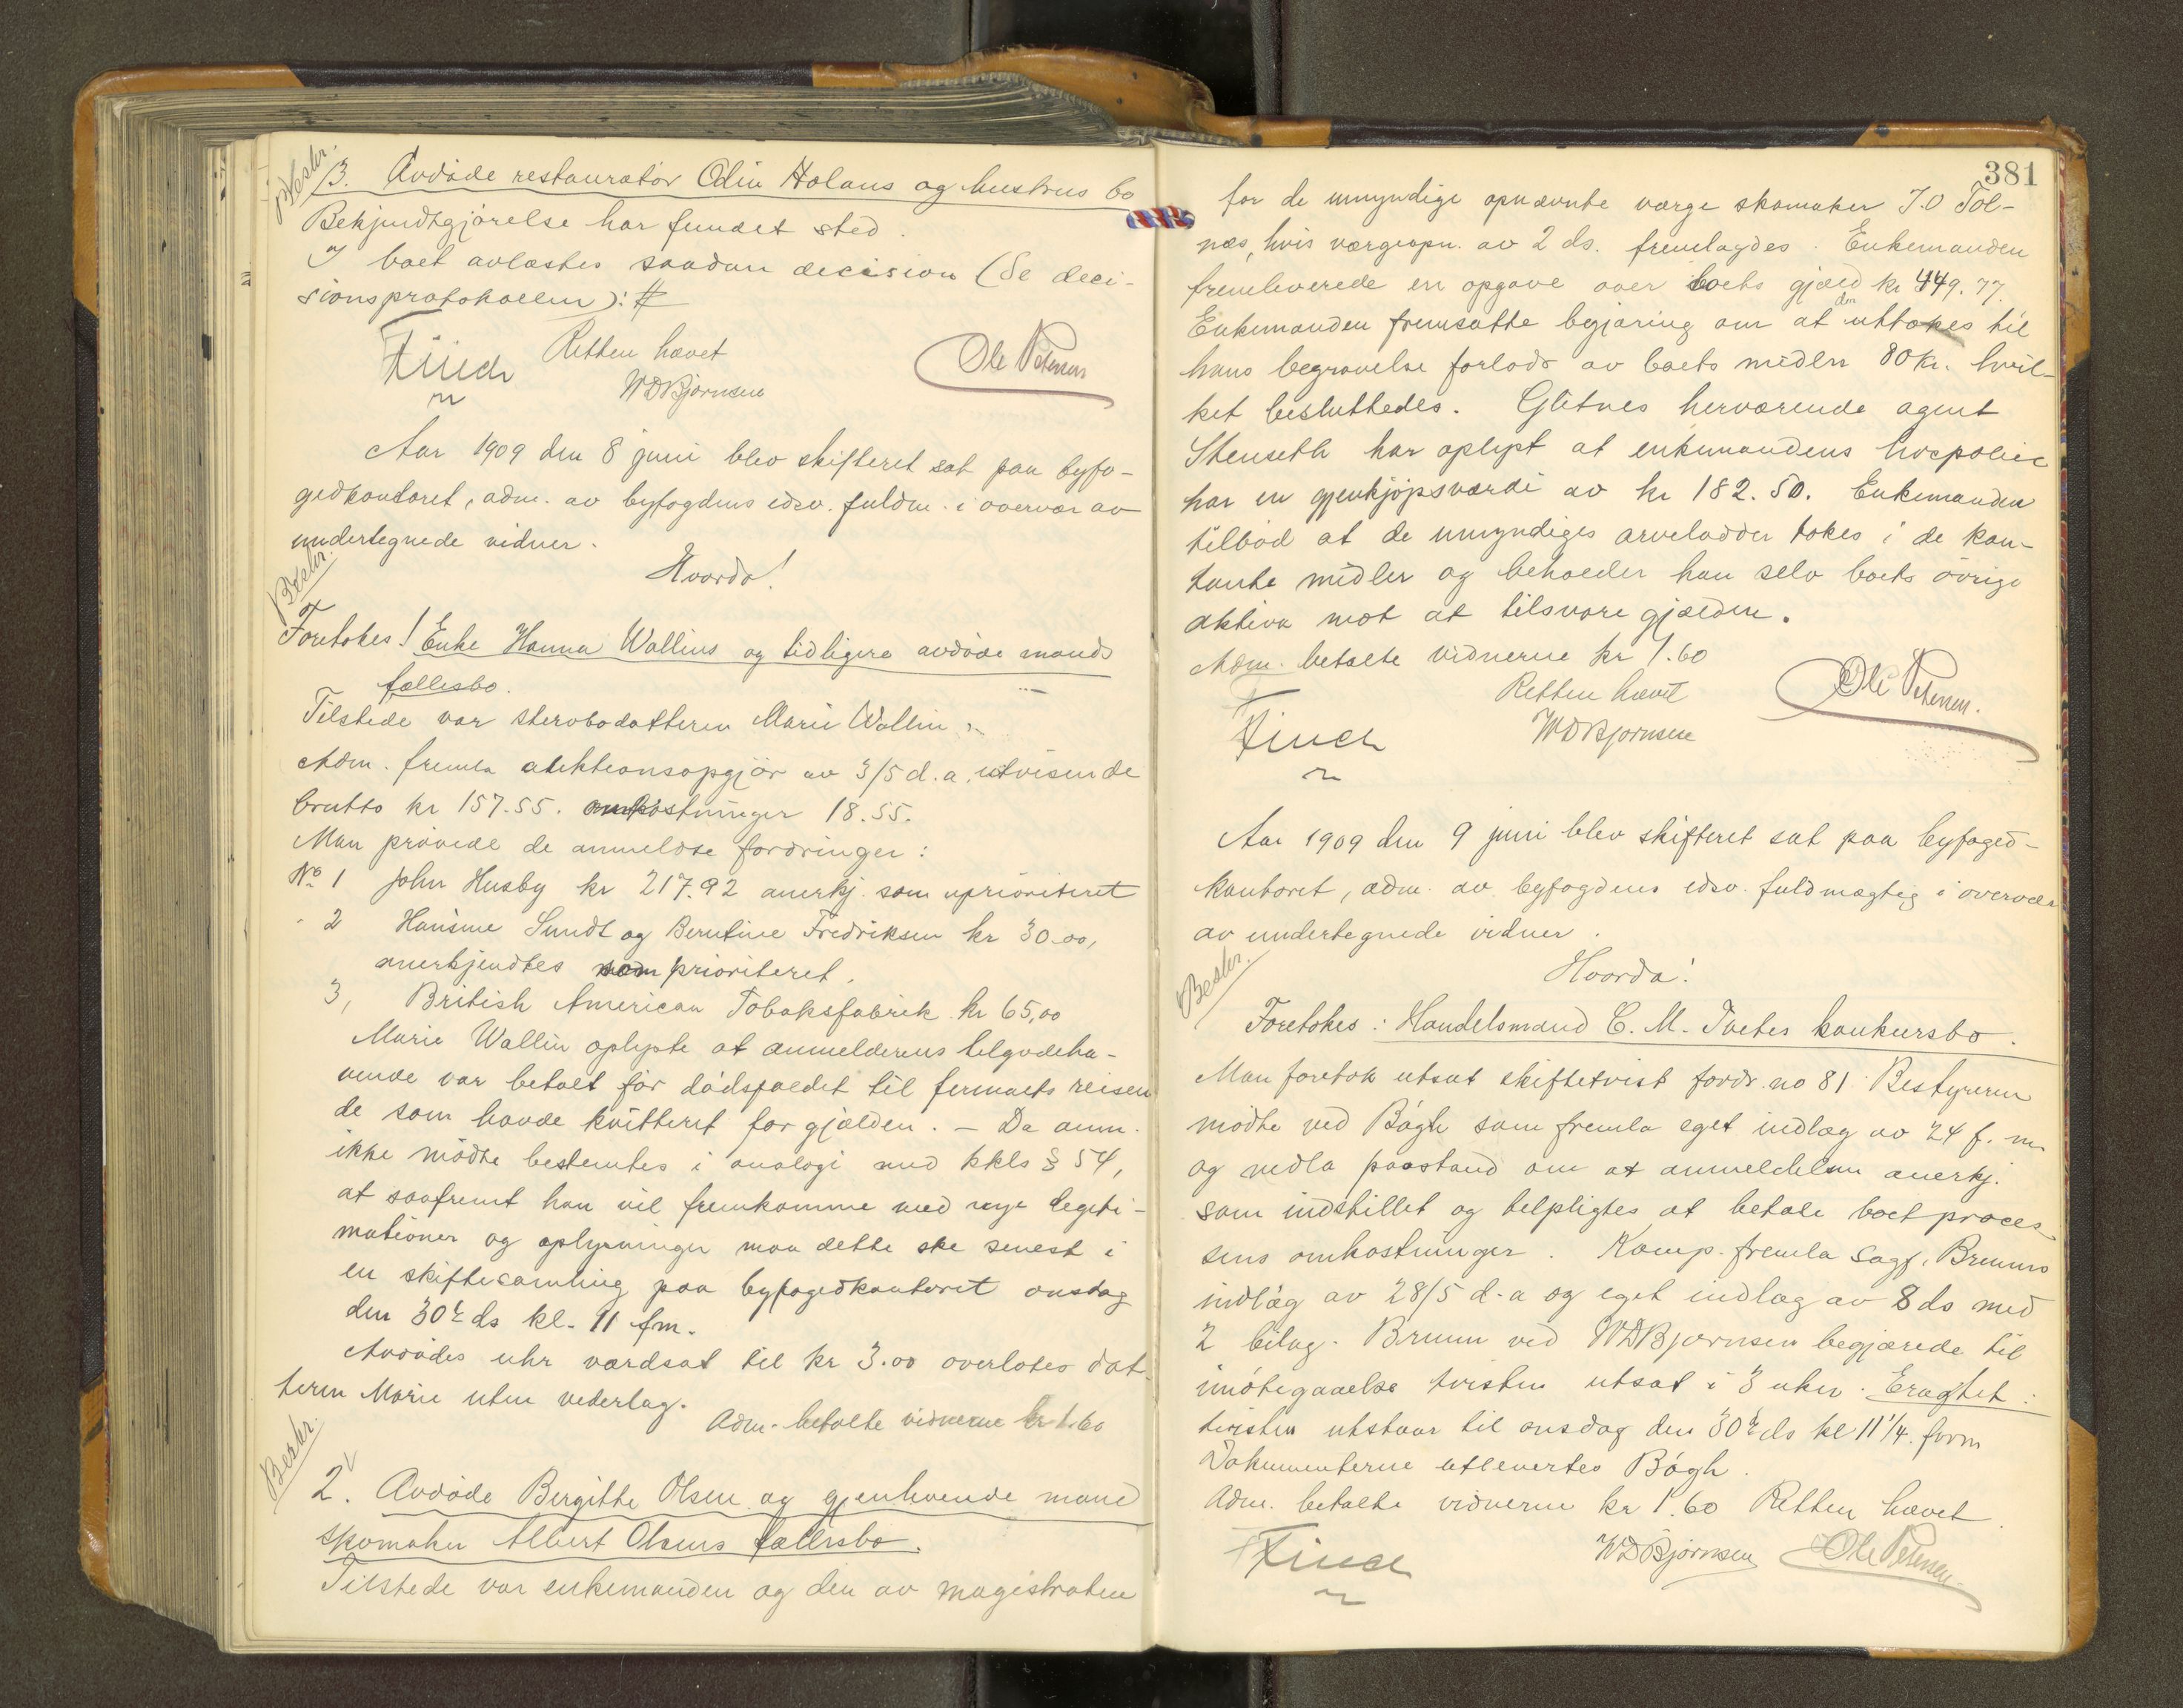 Beskr.
3. Avdøde restauratør Odin Holans og hustrus bo
Bekjendtgjørelse har fundet sted.
I boet avlæstes saadan decision (Se deci-
sionsprotokollen):
Finch Retten hævet Ole Petersen
WDBjørnsen
Aar 1909 den 8 juni blev skifteret sat paa byfo-
gedkontoret, adm. av byfogdens edsv. fuldm. i overvær av
undertegnede vidner.
Beskr.
Hvorda!
Foretokes! Enke Hanna Wallins og tidligere avdøde mands
fællesbo.
Tilstede var stervbodatteren Marie Wallin
Adm. fremla auktionsopgjør av 3/5 d.a. utvisende
brutto kr 157.55. omkostninger 18.55.
Man prøvede de anmeldte fordringer:
No 1 John Husby kr 217.92 anerkj. som uprioriteret
- 2 Hansine Sundt og Berntine Fredriksen kr 30.00,
anerkjendtes som prioriteret.
3, British American Tobaksfabrik kr 65,00
Marie Wallin oplyste at anmelderens tilgodeha-
vende var betalt før dødsfaldet til firmaets reisen
de som havde kvitteret for gjælden. – Da anm.
ikke mødte bestemtes i analogi med kkls § 54,
at saafremt han vil fremkomme med nye legiti-
mationer og oplysninger maa dette ske senest i
en skiftesamling paa byfogedkontoret onsdag
den 30te ds kl. 11 fm.
Avdødes uhr værdsat til kr 3.00 overlotes dat-
teren Marie uten vederlag.
Adm. betalte vidnerne kr 1.60
Beskr.
2. Avdøde Bergitte Olsen og gjenlevende mand
skomaker Albert Olsens fællesbo.
Tilstede var enkemanden og den av magistraten
381
for de umyndige opnævnte værge skomaker J.O Tøl-
næs, hvis værgeopn. av 2 ds. fremlagdes. Enkemanden
fremleverede en opgave over boets gjæld kr 449.77.
Enkemanden fremsatte begjæring om at uttokes til
hans begravelse forlods av boets midler 80 kr. hvil-
ket besluttedes. Glitnes herværende agent
Stenseth har oplyst at enkemandens livspolice
har en gjenkjøpsværdi av kr 182.50. Enkemanden
tilbød at de umyndiges arvelodder tokes i de kon-
tante midler og beholder han selv boets øvrige
aktiva mot at tilsvare gjælden.
Adm. betalte vidnerne kr 1.60
Retten hævet Ole Petersen.
Finch WDBjørnsen
Aar 1909 den 9 juni blev skifteret sat paa byfoged-
kontoret, adm. av byfogdens edsv. fuldmægtig i overvær
av undertegnede vidner.
Beskr.
Hvorda!
Foretokes: Handelsmand C. M. Tvetes konkursbo.
Man foretok utsat skiftetvist fordr. no 81. Bestyreren
mødte ved Bøgh som fremla eget indlæg av 24 f. m.
og nedla paastand om at anmeldelsen anerkj.
som indstillet og tilpligtes at betale boet proces
sens omkostninger. Komp. fremla sagf. Bruuns
indlæg av 28/5 d.a og eget indlæg av 8 ds med
2 bilag. Bruun ved WDBjørnsen begjærede til
imøtegaaelse tvisten utsat i 3 uker. Eragtet:
tvisten utstaar til onsdag den 30te ds kl 11 1/4. form
Dokumenterne utlevertes Bøgh.
Adm. betalte vidnerne kr 1.60 Retten hævet.
Finch WDBjørnsen Ole Petersen.